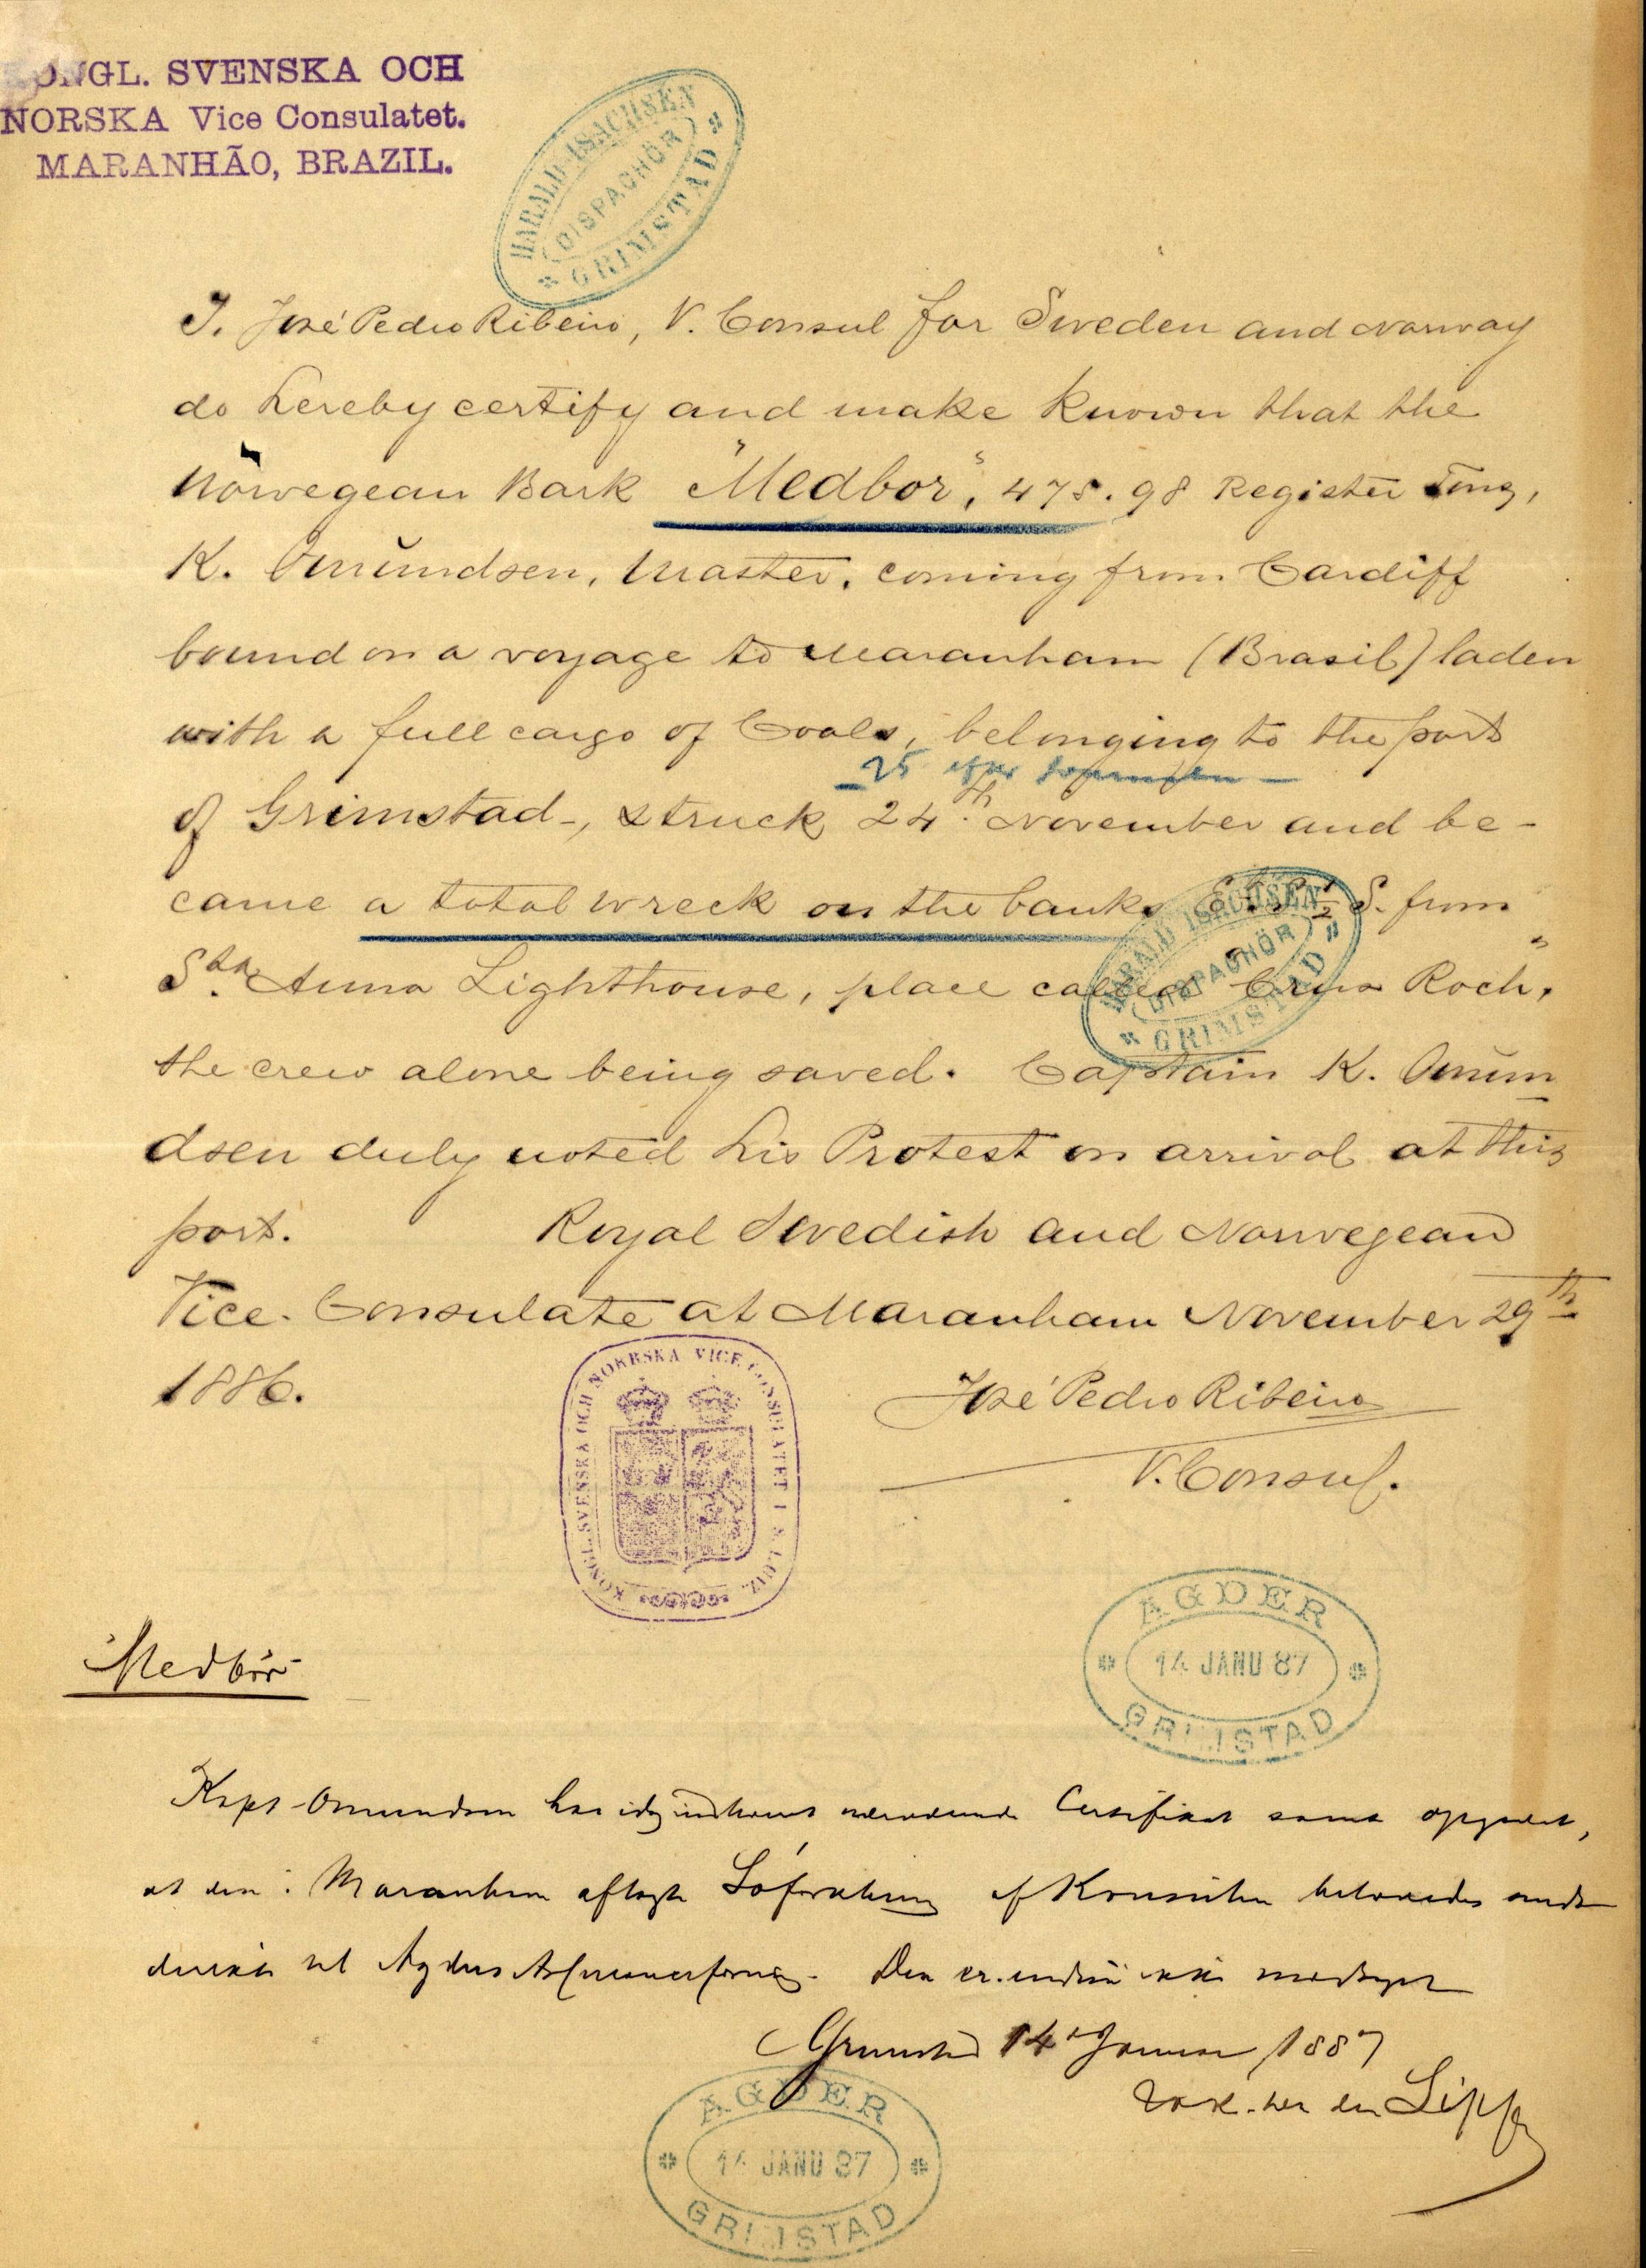 KONGL. SVENSKA OCH
NORSKA Vice Consulatet.
MARANHÃO, BRAZIL.
HARALD ISACHSEN
DISPACHÖR
GRIMSTAD
I. José Pedro Ribeiro, V. Consul for Sweden and Norway
do hereby certify and make known that the
Norwegean Bark "Medbor", 475.98 Register Tons,
K. Omŭndsen, Master, coming from Cardiff
bound on a voyage to Maranham (Brasil) laden
with a full cargo of Coals, belonging to the port
25 efter
of Grimstad, struck 24th November and be-
came a total wreck on the banks ½ S. from
Sta Anna Lighthouse, place called Roch",
HARALD ISACHSEN
DISPACHÖR
GRIMSTAD
the crew alone being saved. Captain K. Omŭn
dsen duly noted his Protest on arrival at this
port. Royal Swedish and Norwegean
Vice-Consulate at Maranham November 29th
1886. José Pedro Ribeiro
V. Consul.
KONGL. SVENSKA OCH NORRSKA VICE CONSULATET I S. LUIZ.
AGDER
14 JANU 87
GRIMSTAD
Medbør
Kapt Omundsen har idag Certifikat samt opgivet,
at den i Maranham aflagte Søforklaring af Konsulen
direkte til Agders Den er endnu ikke
Grimstad 14 Januar 1887
AGDER
14 JANU 87
GRIMSTAD